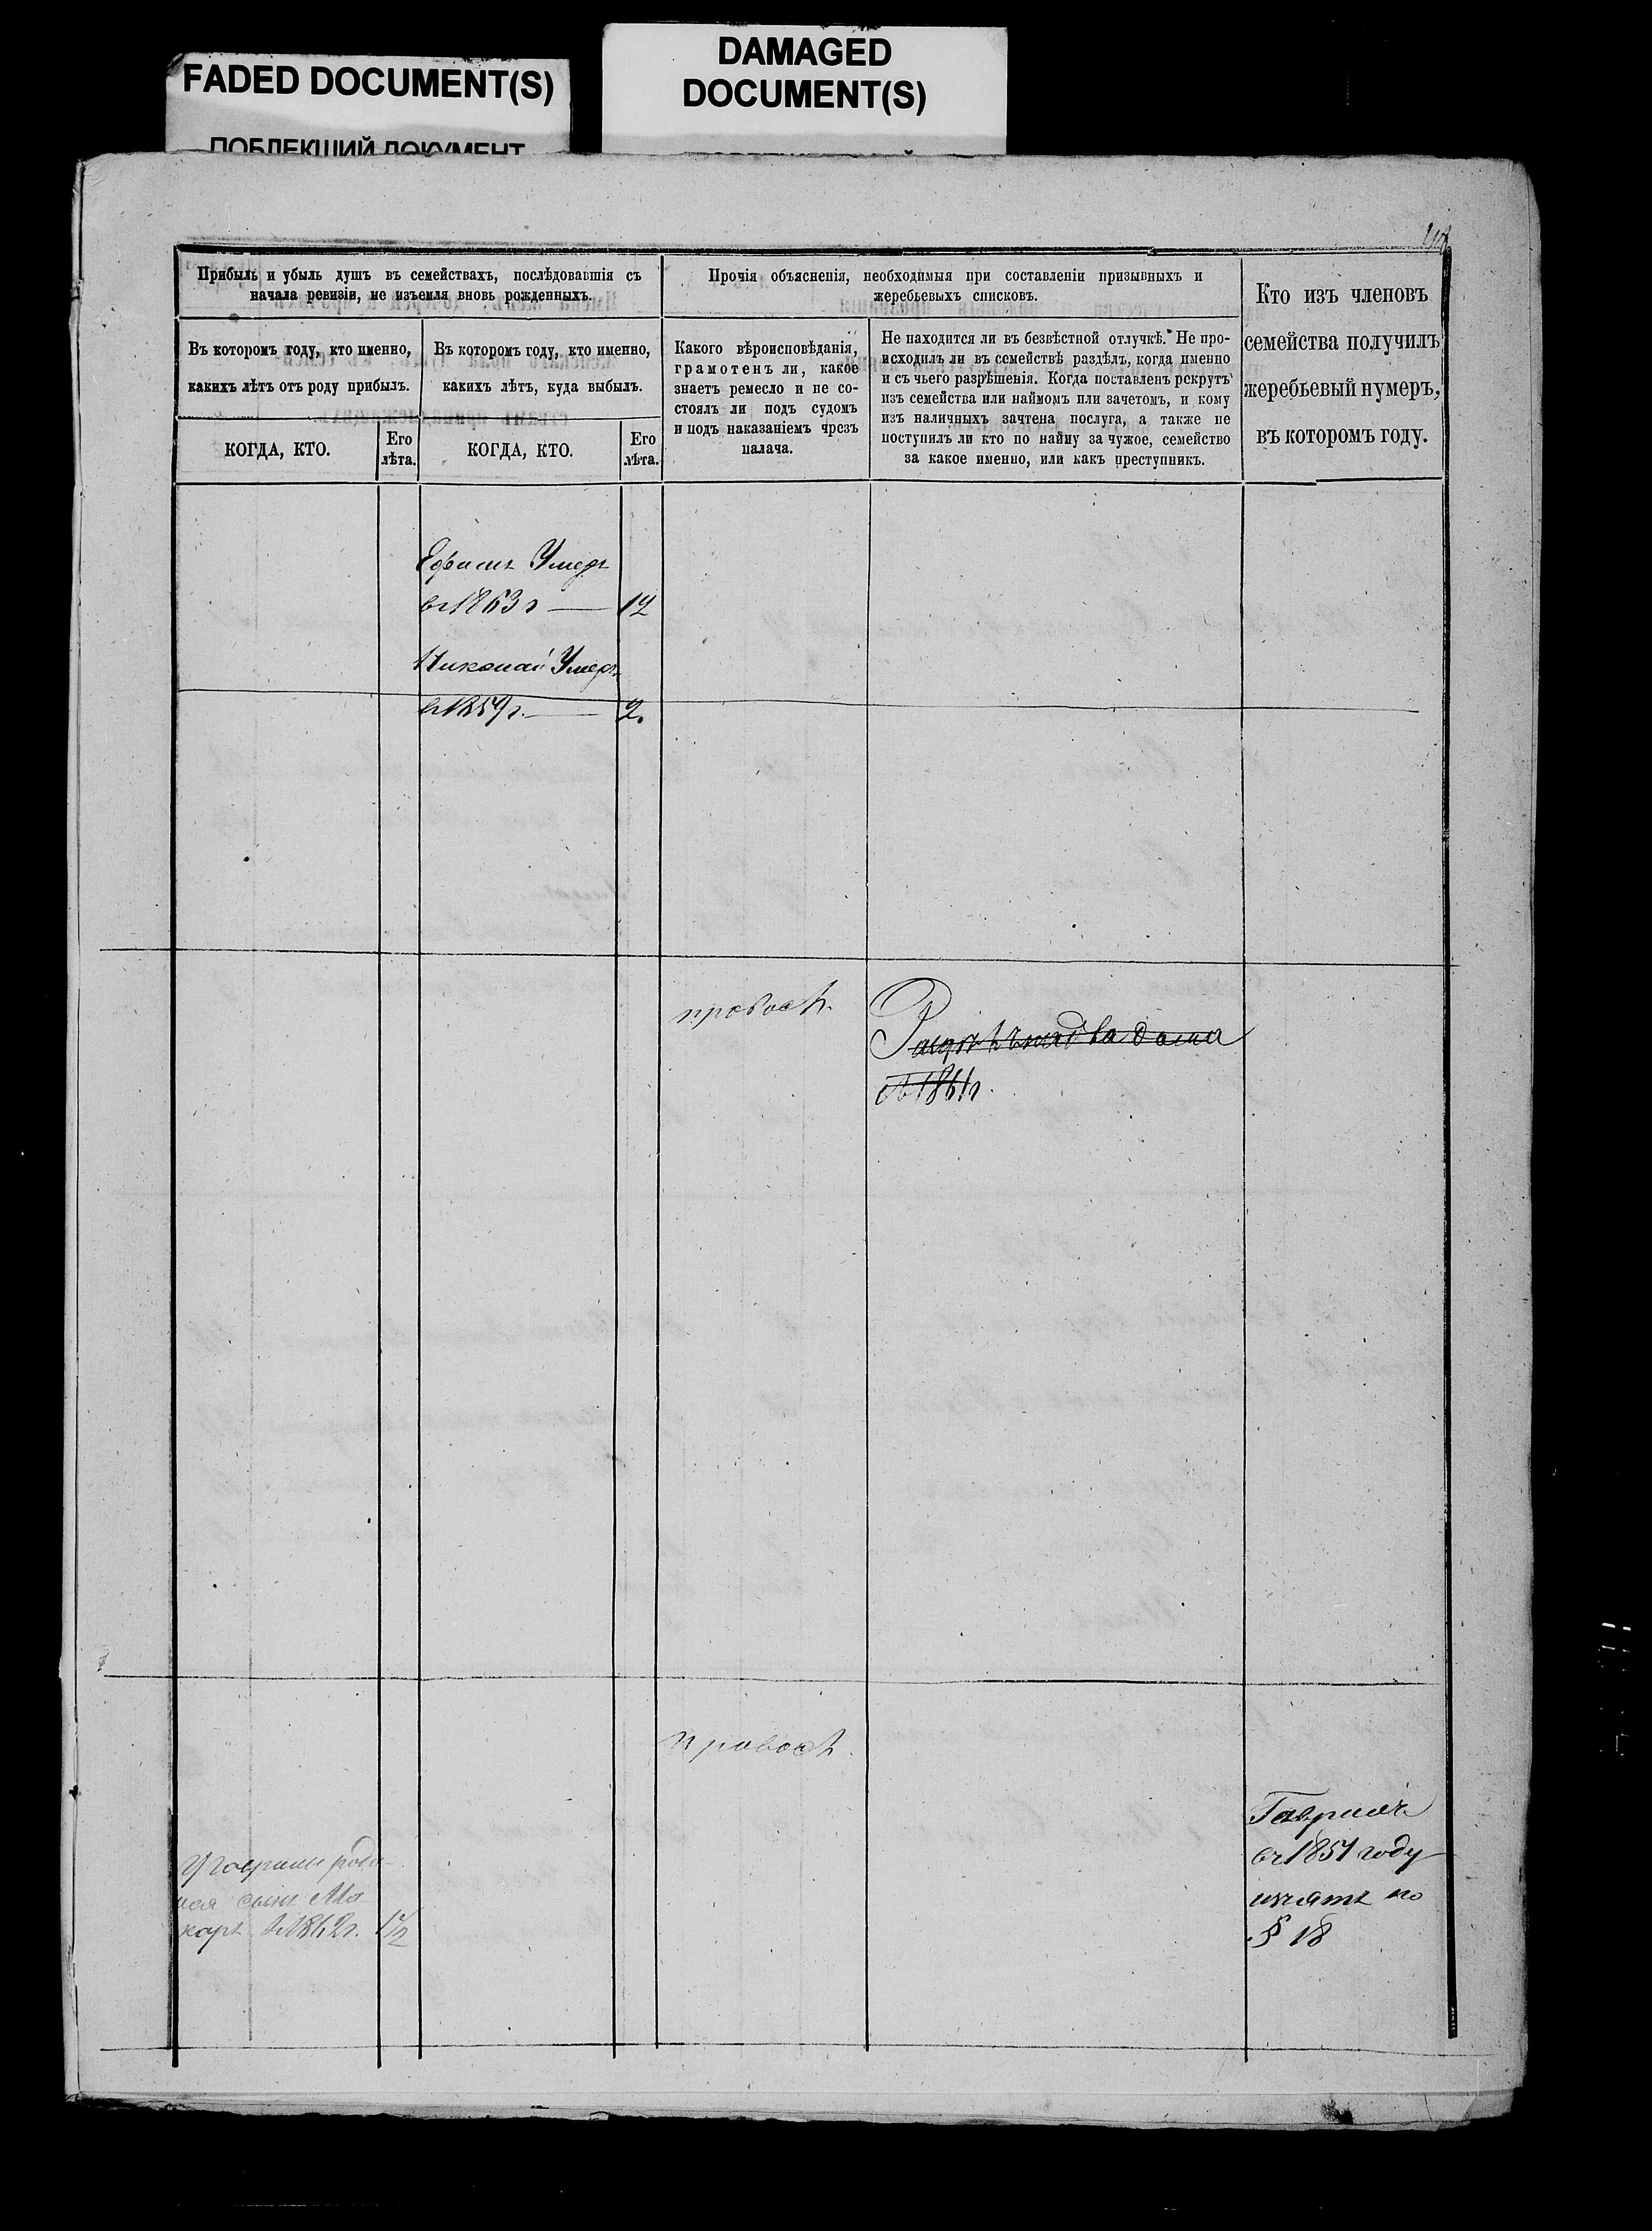 FADED DOCUMENT(S)
ПОБЛЕКШИЙ ДОКУМЕНТ
DAMAGED
DOCUMENT(S)
Прибыль и убыль душъ въ семействахъ, послѣдовавшія съ
начала ревизіи, не изъемля вновь рожденныхъ.
Прочія объясненія, необходимыя при составленіи призывныхъ и
жеребьевыхъ списковъ.
Кто изъ членовъ
семейства получилъ
жеребьевый нумеръ,
въ которомъ году.
Въ которомъ году, кто именно,
какихъ лѣтъ отъ роду прибылъ.
Въ которомъ году, кто именно,
какихъ лѣтъ, куда выбылъ.
Какого вѣроисповѣданія,
грамотенъ ли, какое
знаетъ ремесло и не со-
стоялъ ли подъ судомъ
и подъ наказаніемъ чрезъ
палача.
Не находится ли въ безвѣстной отлучкѣ. Не про-
исходилъ ли въ семействѣ раздѣлъ, когда именно
и съ чьего разрѣшенія. Когда поставленъ рекрутъ
изъ семейства или наймомъ или зачетомъ, и кому
изъ наличныхъ зачтена послуга, а также не
поступилъ ли кто по найму за чужое, семейство
за какое именно, или какъ преступникъ.
КОГДА, КТО.
Его
лѣта.
КОГДА, КТО.
Его
лѣта.
Ефимъ Умеръ
въ 1863 г — 12
Николай Умеръ
въ 1859 г. — 2.
правосл.
на два дома
1861 г.
правосл.
Гаврилъ
въ 1851 году
изъятъ по
§ 18
У Гаврилы роди-
лся сынъ Ма
каръ въ 1862 г. 1/2